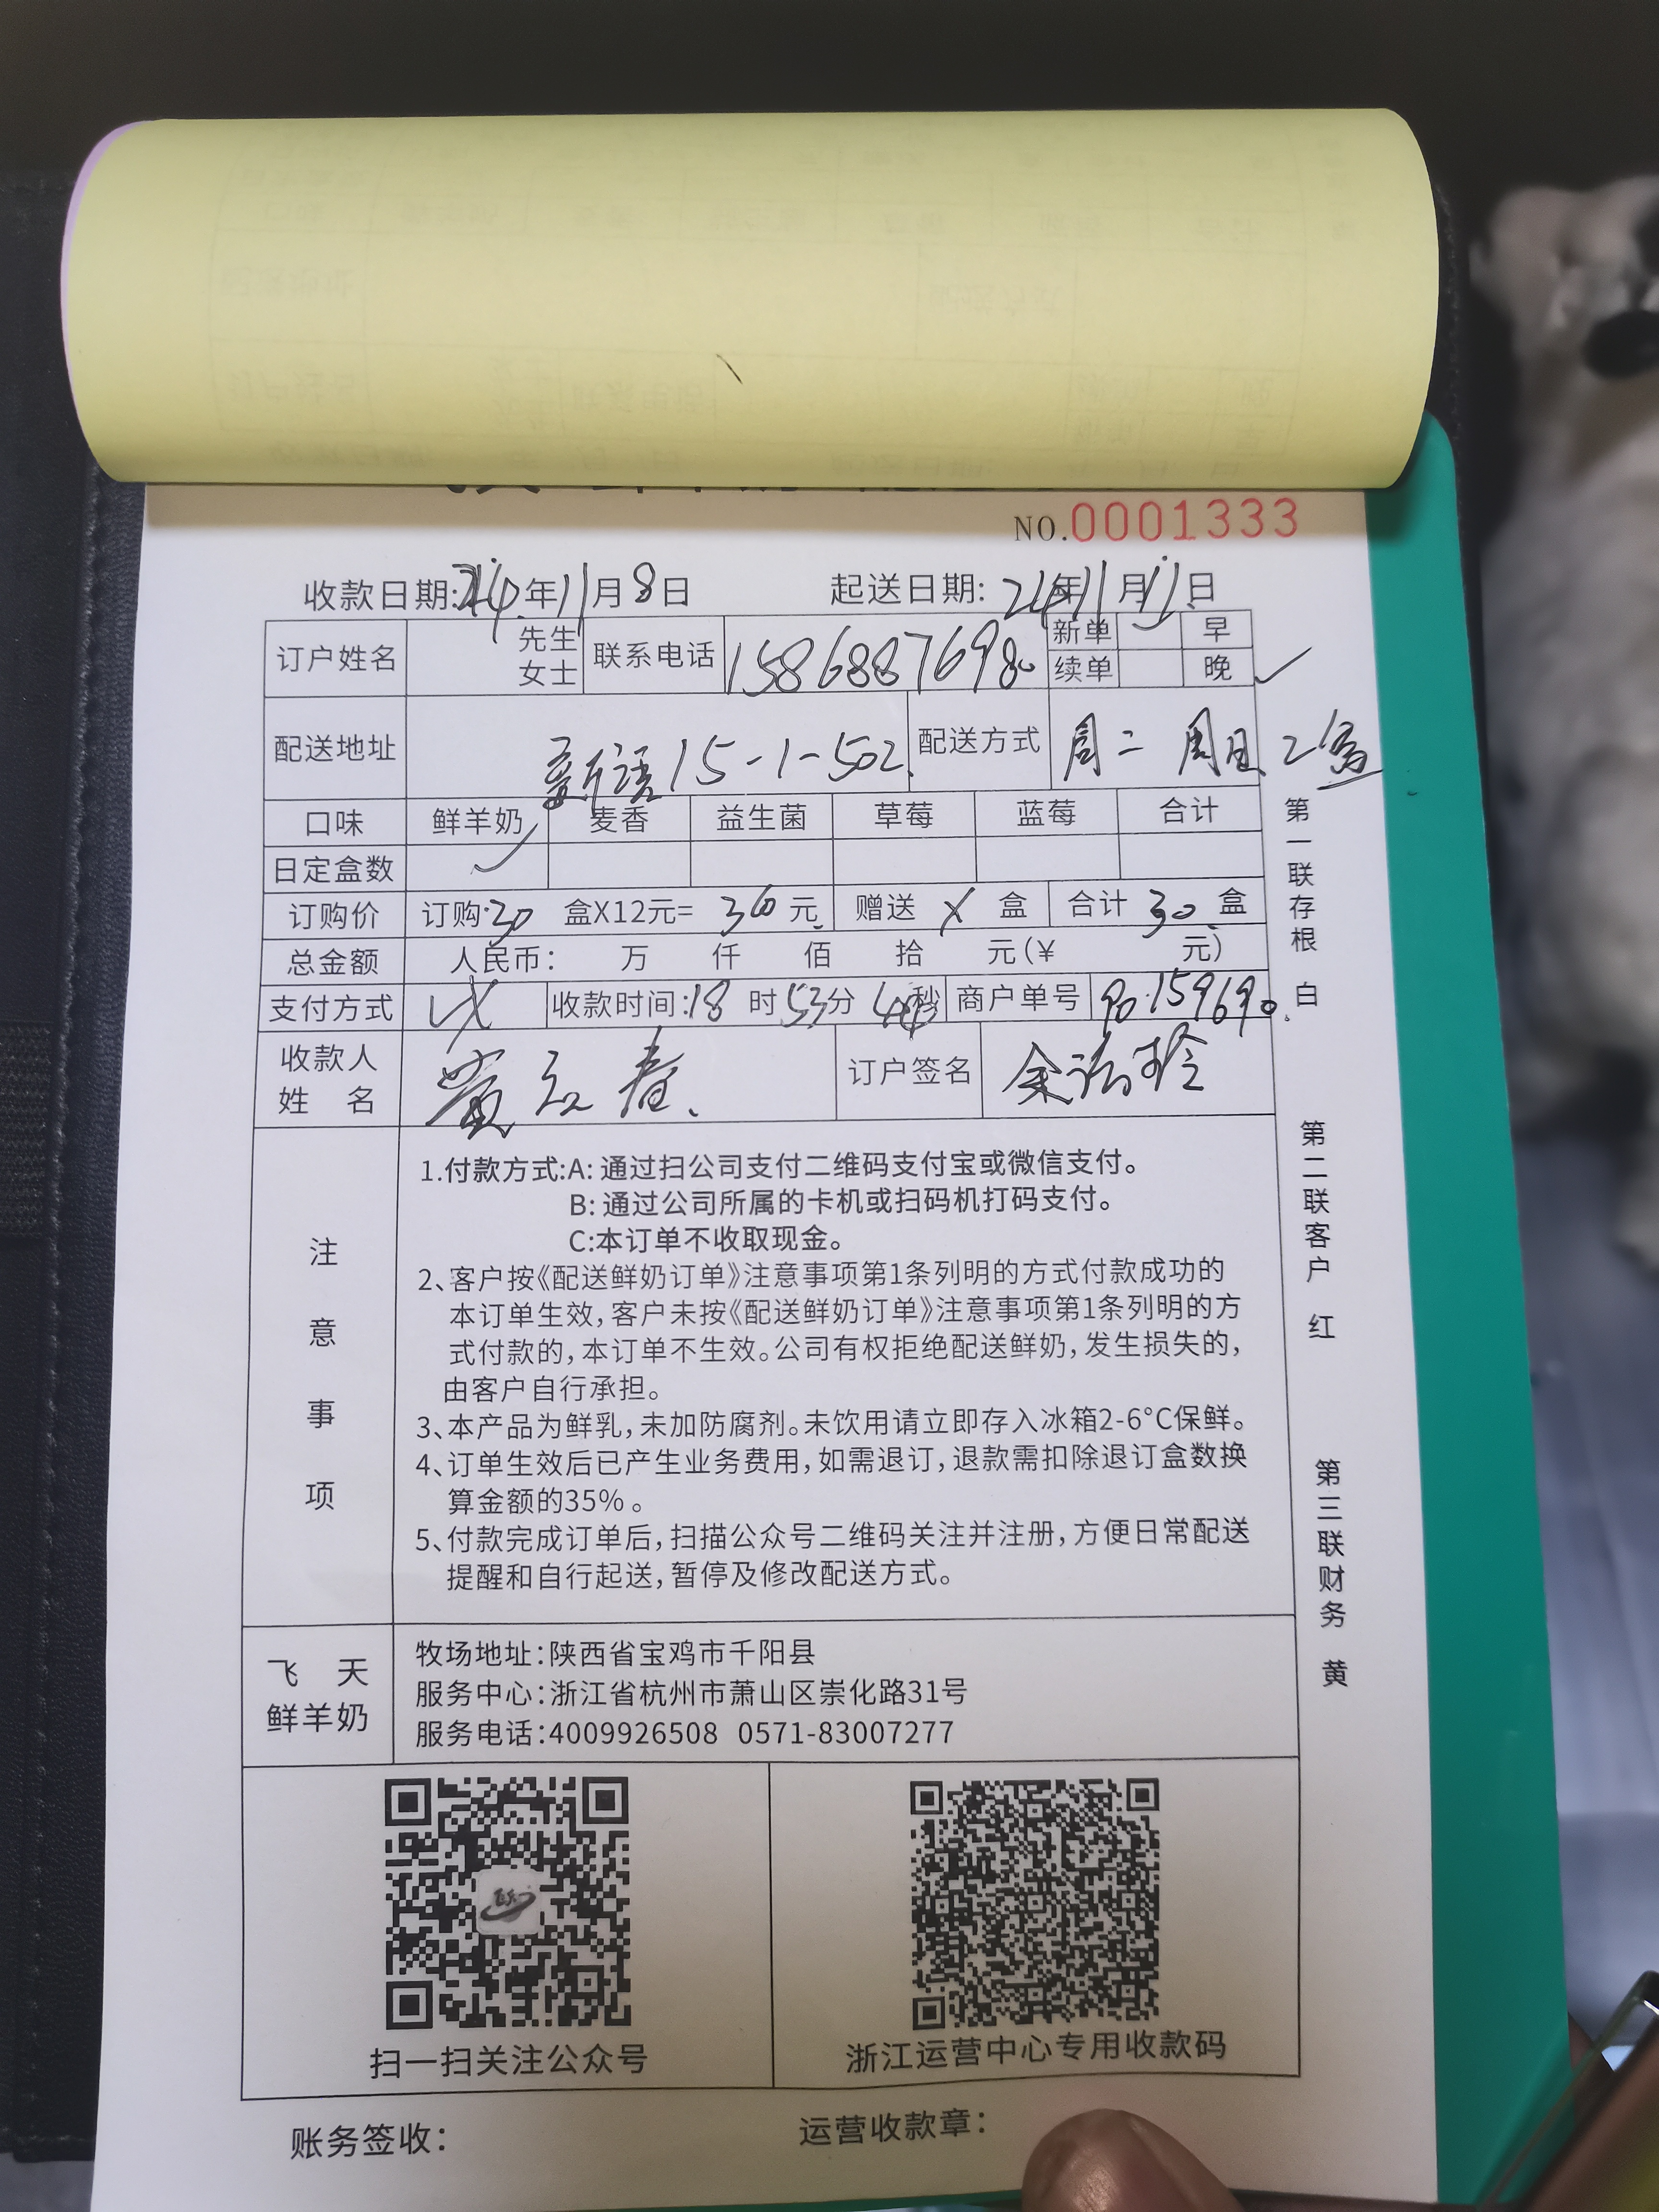 NO.0001333
收款日期:24年11月8日 起送日期:24年11月11日
订户姓名 先生 女士 联系电话 15868876980 新单 早
续单 晚 ✓
配送地址 新语15-1-502 配送方式 周二 周日 2盒
口味 鲜羊奶 麦香 益生菌 草莓 蓝莓 合计
日定盒数 ✓
订购价 订购30盒X12元=360元 赠送 X 盒 合计 30 盒
总金额 人民币: 万 仟 佰 拾 元(¥ 元)
支付方式 收款时间:18时53分44秒 商户单号 90159690
收款人
姓 名 订户签名
注意事项
1.付款方式:A:通过扫公司支付二维码支付宝或微信支付。
B:通过公司所属的卡机或扫码机打码支付。
C:本订单不收取现金。
2、客户按《配送鲜奶订单》注意事项第1条列明的方式付款成功的
本订单生效,客户未按《配送鲜奶订单》注意事项第1条列明的方
式付款的,本订单不生效。公司有权拒绝配送鲜奶,发生损失的,
由客户自行承担。
3、本产品为鲜乳,未加防腐剂。未饮用请立即存入冰箱2-6°C保鲜。
4、订单生效后已产生业务费用,如需退订,退款需扣除退订盒数换
算金额的35%。
5、付款完成订单后,扫描公众号二维码关注并注册,方便日常配送
提醒和自行起送,暂停及修改配送方式。
飞 天
鲜羊奶
牧场地址:陕西省宝鸡市千阳县
服务中心:浙江省杭州市萧山区崇化路31号
服务电话:4009926508 0571-83007277
扫一扫关注公众号 浙江运营中心专用收款码
账务签收: 运营收款章:
第一联存根 白
第二联客户 红
第三联财务 黄